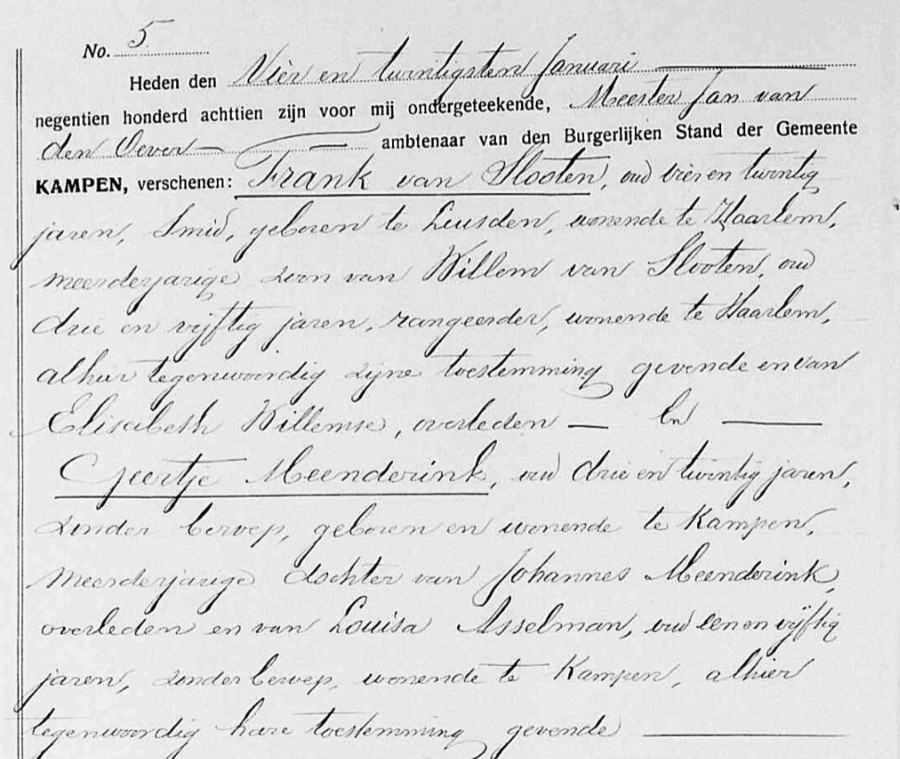 No. 5
Heden den Vier en twintigsten Januari
negentien honderd achttien zijn voor mij ondergeteekende, Meester Jan van
den Oever ambtenaar van den Burgerlijken Stand der Gemeente
KAMPEN, verschenen: Frank van Slooten, oud vier en twintig
jaren, Smid, geboren te Leusden, wonende te Haarlem,
meerderjarige zoon van Willem van Slooten, oud
drie en vijftig jaren, rangeerder, wonende te Haarlem,
alhier tegenwoordig zijne toestemming gevende en van
Elisabeth Willemse, overleden — En —
Geertje Meenderink, oud drie en twintig jaren,
zonder beroep, geboren en wonende te Kampen,
meerderjarige dochter van Johannes Meenderink,
overleden en van Louisa Asselman, oud een en vijftig
jaren, zonder beroep, wonende te Kampen, alhier
tegenwoordig hare toestemming gevende —